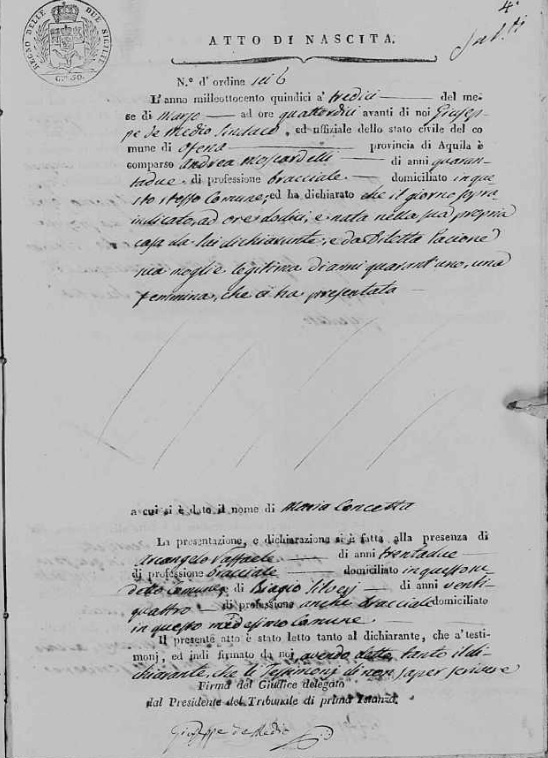 REGNO DELLE DUE SICILIE
G. 50.
4
ATTO DI NASCITA.
N.° d'ordine sei 6
L'anno milleottocento quindici a' tredici del me-
se di Marzo ad ore quattordici avanti di noi Giusep-
pe de Medio Sindaco, ed uffiziale dello stato civile del co
mune di Ofena provincia di Aquila è
comparso Andrea Moscardelli di anni quaran-
tadue di professione bracciale domiciliato in que
sto stesso Comune, ed ha dichiarato che il giorno sopra
indicato, ad ore dodici, è nata nella sua propria
casa da lui dichiarante, e da Diletta Pacione
sua moglie legitima di anni quarant'uno, una
femmina, che ci ha presentata
a cui si è dato il nome di Maria Concetta
La presentazione, e dichiarazione si è fatta alla presenza di
Arcangelo Raffaele di anni trentadue
di professione bracciale domiciliato in questo su
detto Comune e di Biagio Silverj di anni venti
quattro di professione anche bracciale domiciliato
in questo medesimo Comune
Il presente atto è stato letto tanto al dichiarante, che a' testi-
monj, ed indi firmato da noi, avendo detto, tanto il di
chiarante, che li Testimonj di non saper scrivere
Firma del Giudice delegato
dal Presidente del Tribunale di prima Istanza.
Giuseppe de Medio